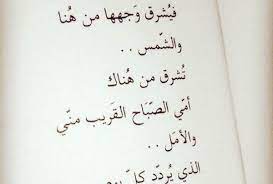 فيُشرق وَجهها من هُنا
والشّمس ..
تُشرق من هُناك
أمّي الصّبَاح القَريب منّي
والأمَل ..
الذي يُردّد كلّ